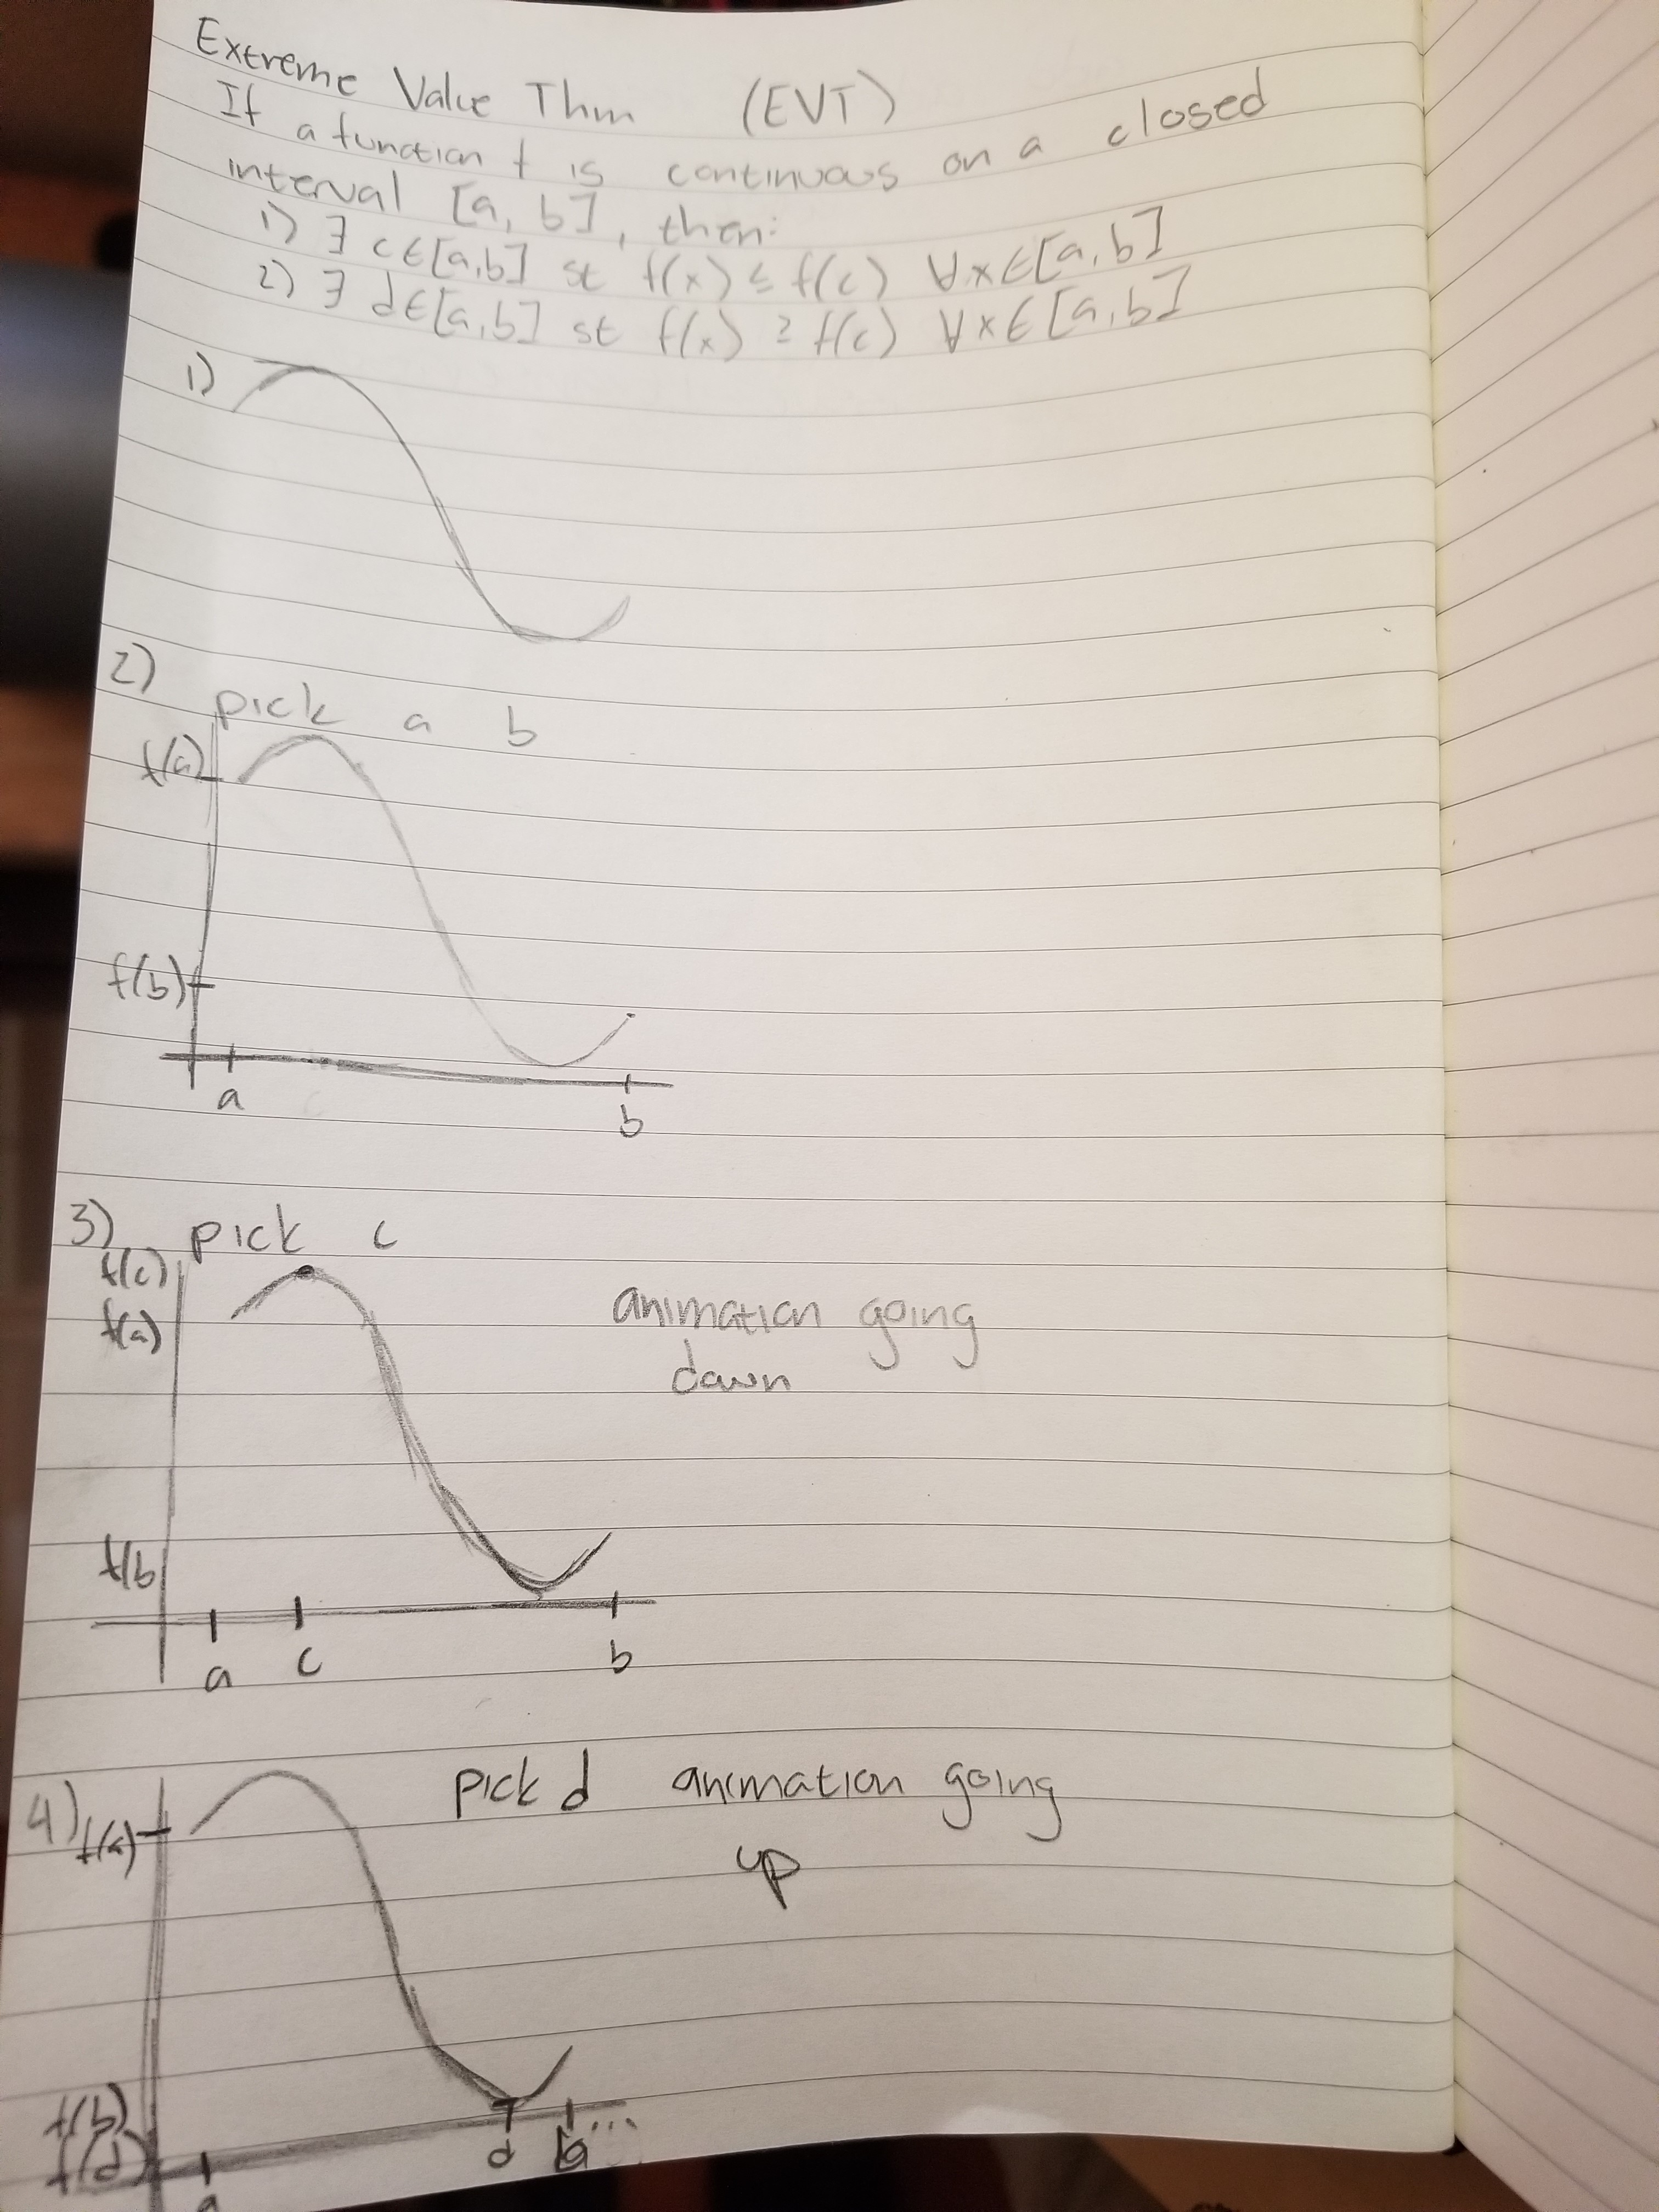 Extreme Value Thm (EVT)
If a function f is continuous on a closed
interval [a, b], then:
1) ∃ c∈[a,b] st f(x) ≤ f(c) ∀x∈[a,b]
2) ∃ d∈[a,b] st f(x) ≥ f(c) ∀x∈[a,b]
1)
2)
pick a b
f(a)
f(b)
a
b
3) pick c
f(c)
f(a)
animation going
down
f(b
a c b
4) pick d animation going
up
f(a)
f(b)
f(d)
d b...
a